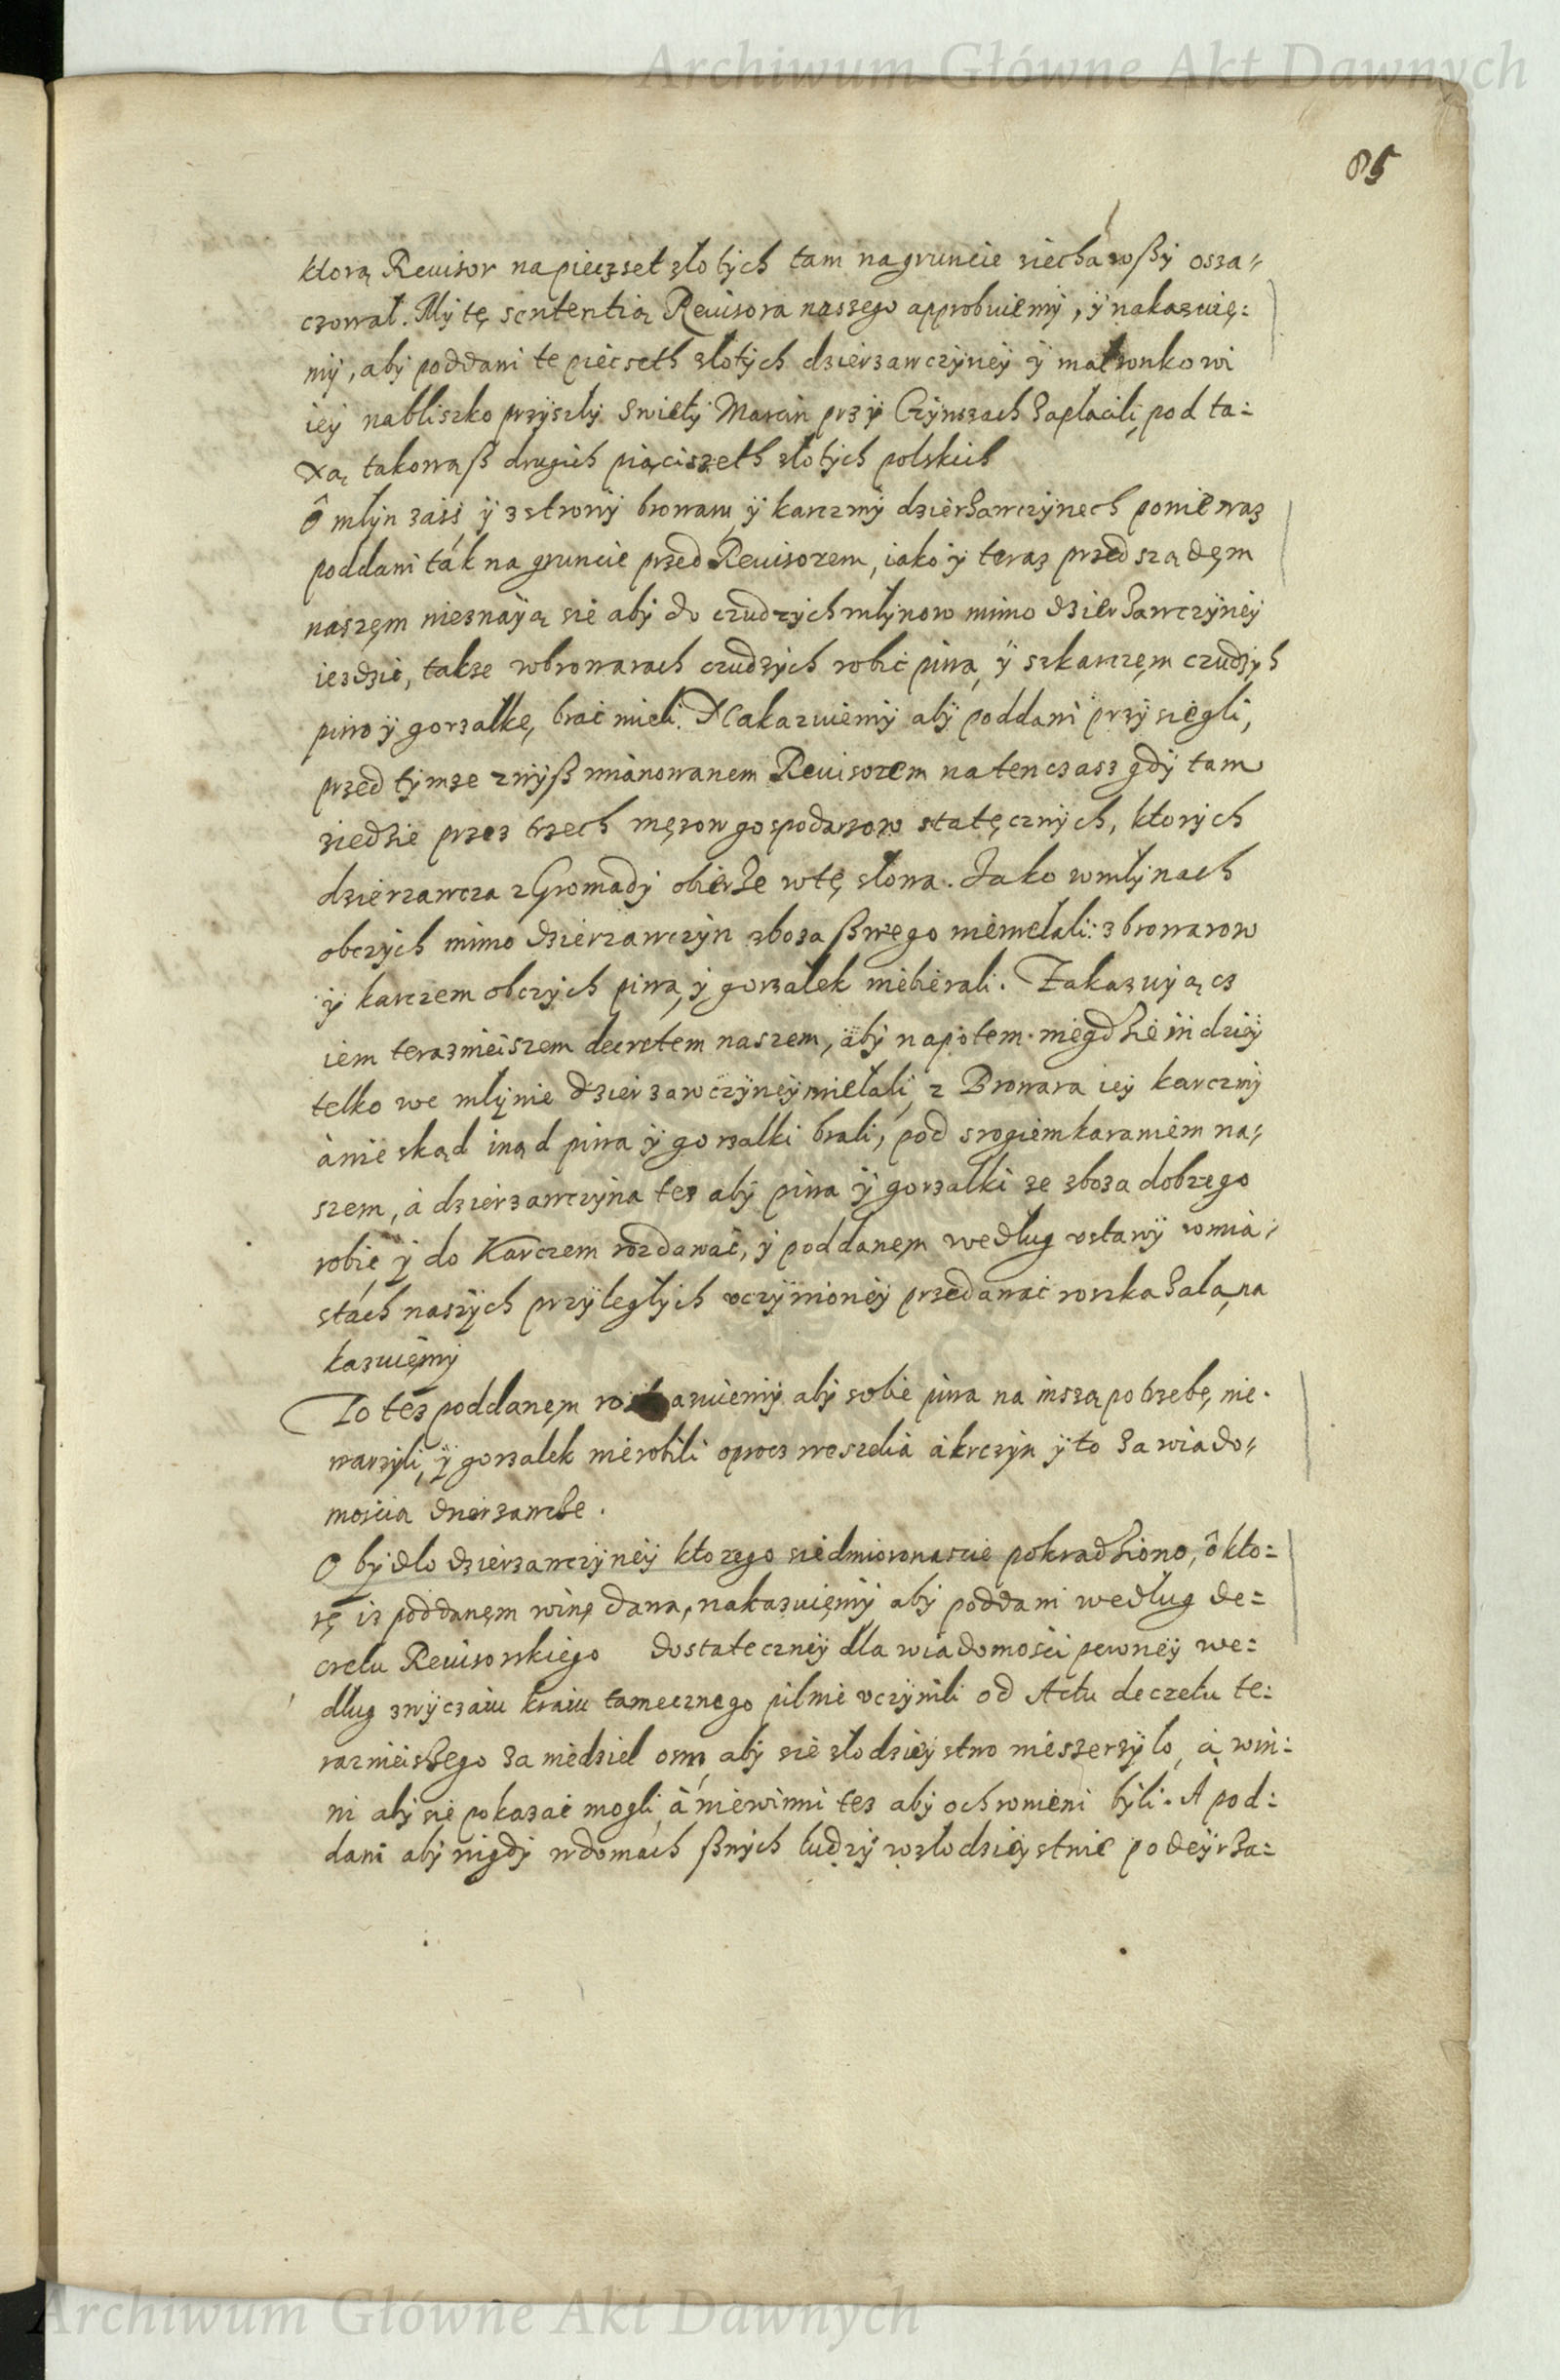 Archiwum Główne Akt Dawnych
85
ktorą Reuisor na pieczset złotych tam na gruncie ziechawszy osza-
czował. My tę sententią Reuisora naszego approbuiemy, y nakazuię:
my, aby poddani te piećseth złotych dzierzawczyney y małzonkowi
iey nabliszko przyszły Swięty Marcin przy Czynszach zapłacili, pod ta:
xą takowąß drugich piąciszeth złotych polskich
O młyn zaśś y z strony browaru y karczmy dzierżawczynech poniewaz
poddani ták na gruncie przed Reuisorem, iako y teraz przed sządęm
naszęm nieznaią się aby do czudzych młynow mimo dzierżawczyney
iezdzic, takze wbrowarach czudzych robić piwa, y szkarczęm czudzych
piwo y gorzałkę, brać mieli. Nakazuiemy aby poddani przysięgli,
przed tymze zwyß mianowanem Reuisorem natenczasz gdy tam
ziedzie przez trzech męzow gospodarzow statęcznych, ktorych
dzierzawcza z Gromady obierże wtę słowa. Jako wmłynach
obczych mimo dzierzawczyn zboza ßwego niemełali: z browarow
y karczem obczych piwa, y gorzałek niebierali. Zakazuyącz
iem teraznieiszem decretem naszem, aby napotem niegdzie indziey
telko we młynie dzierzawczyney miełali, z Browara iey karczmy
á nie skąd inąd piwa y gorzałki brali, pod srogiem karaniem na-
szem, á dzierzawczyna tez aby piwa y gorzałki ze zboza dobrego
robić y do Karczem rozdawać, y poddanęm według vstawy wmia-
stách naszych przyległych vczynioney przedawać roszkazała, na
kazuięmy
To téz poddanęm roskazuiemy aby sobie piwa na inszą potrzebę, nie-
warzyli, y gorzałek nierobili oprocz weszelia á krczyn y to za wiado-
mością dzierzawcze.
O bydło dzierzawczyney ktorego siedmioronascie pokradziono, o kto:
rę iz poddanęm winę dawa, nakazuięmy aby poddani według de:
cretu Reuisorskiego dostateczney dla wiadomości pewney we:
dług zwyczaiu kraiu tamecznego pilnie vczynili od Actu decretu te:
raznieiszego za niedziel osm, aby się złodzieystwo nieszerzyło, á win:
ni aby się pokazać mogli, á niewinni tez aby ochronieni byli. A pod:
dani aby nigdy wdomach ßwych ludzy wzłodzieystwie podeyrza:
Archiwum Główne Akt Dawnych